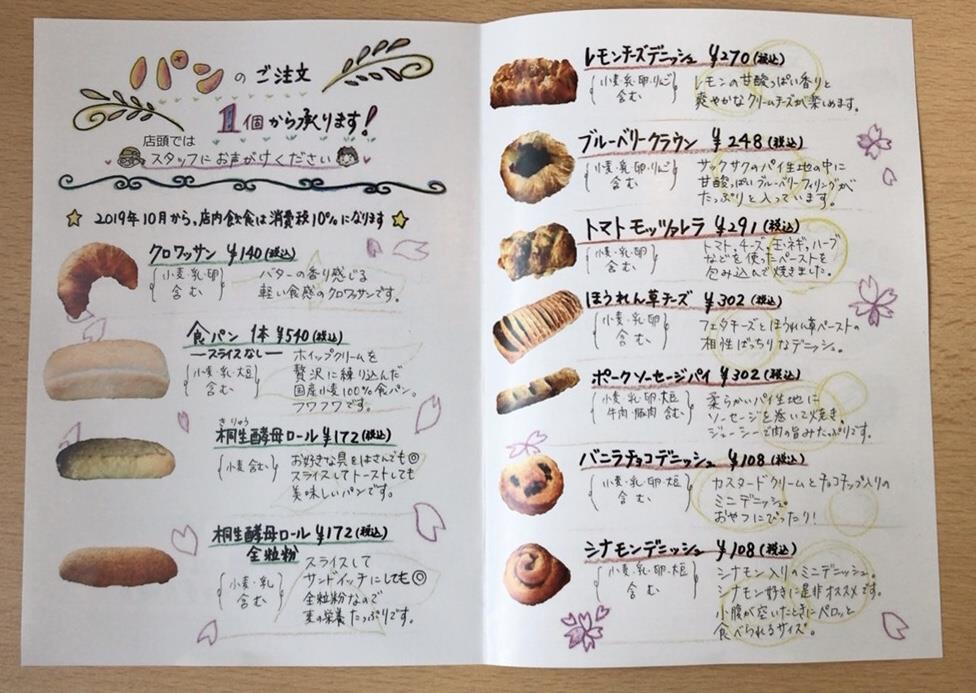 パンのご注文
1個から承ります!
店頭では
スタッフにお声がけください
2019年10月から、店内飲食は消費税10%になります
クロワッサン ¥140(税込)
小麦・乳・卵
含む
バターの香り感じる
軽い食感のクロワッサンです。
食パン 1本 ¥540(税込)
―スライスなし―
小麦・乳・大豆
含む
ホイップクリームを
贅沢に練り込んだ
国産小麦100%食パン。
フワフワです。
きりゅう
桐生酵母ロール ¥172(税込)
小麦 含む
お好きな具をはさんでも◎
スライスしてトーストしても
美味しいパンです。
桐生酵母ロール ¥172(税込)
全粒粉
小麦・乳
含む
スライスして
サンドイッチにしても◎
全粒粉なので
麦の栄養たっぷりです。
レモンチーズデニッシュ ¥270(税込)
小麦・乳・卵・りんご
含む
レモンの甘酸っぱい香りと
爽やかなクリームチーズが楽しめます。
ブルーベリークラウン ¥248(税込)
小麦・乳・卵・りんご
含む
サックサクのパイ生地の中に
甘酸っぱいブルーベリーフィリングが
たっぷりと入っています。
トマトモッツァレラ ¥291(税込)
小麦・乳・卵
含む
トマト、チーズ、玉ネギ、ハーブ
などを使ったペーストを
包み込んで焼きました。
ほうれん草チーズ ¥302(税込)
小麦・乳・卵
含む
フェタチーズとほうれん草ペーストの
相性ばっちりなデニッシュ。
ポークソーセージパイ ¥302(税込)
小麦・乳・卵・大豆
牛肉・豚肉 含む
柔らかいパイ生地に
ソーセージを巻いて焼き、
ジューシーで肉の旨みたっぷりです。
バニラチョコデニッシュ ¥108(税込)
小麦・乳・卵・大豆
含む
カスタードクリームとチョコチップ入りの
ミニデニッシュ。
おやつにぴったり!
シナモンデニッシュ ¥108(税込)
小麦・乳・卵・大豆
含む
シナモン入りのミニデニッシュ。
シナモン好きに是非オススメです。
小腹が空いたときにペロッと
食べられるサイズ。